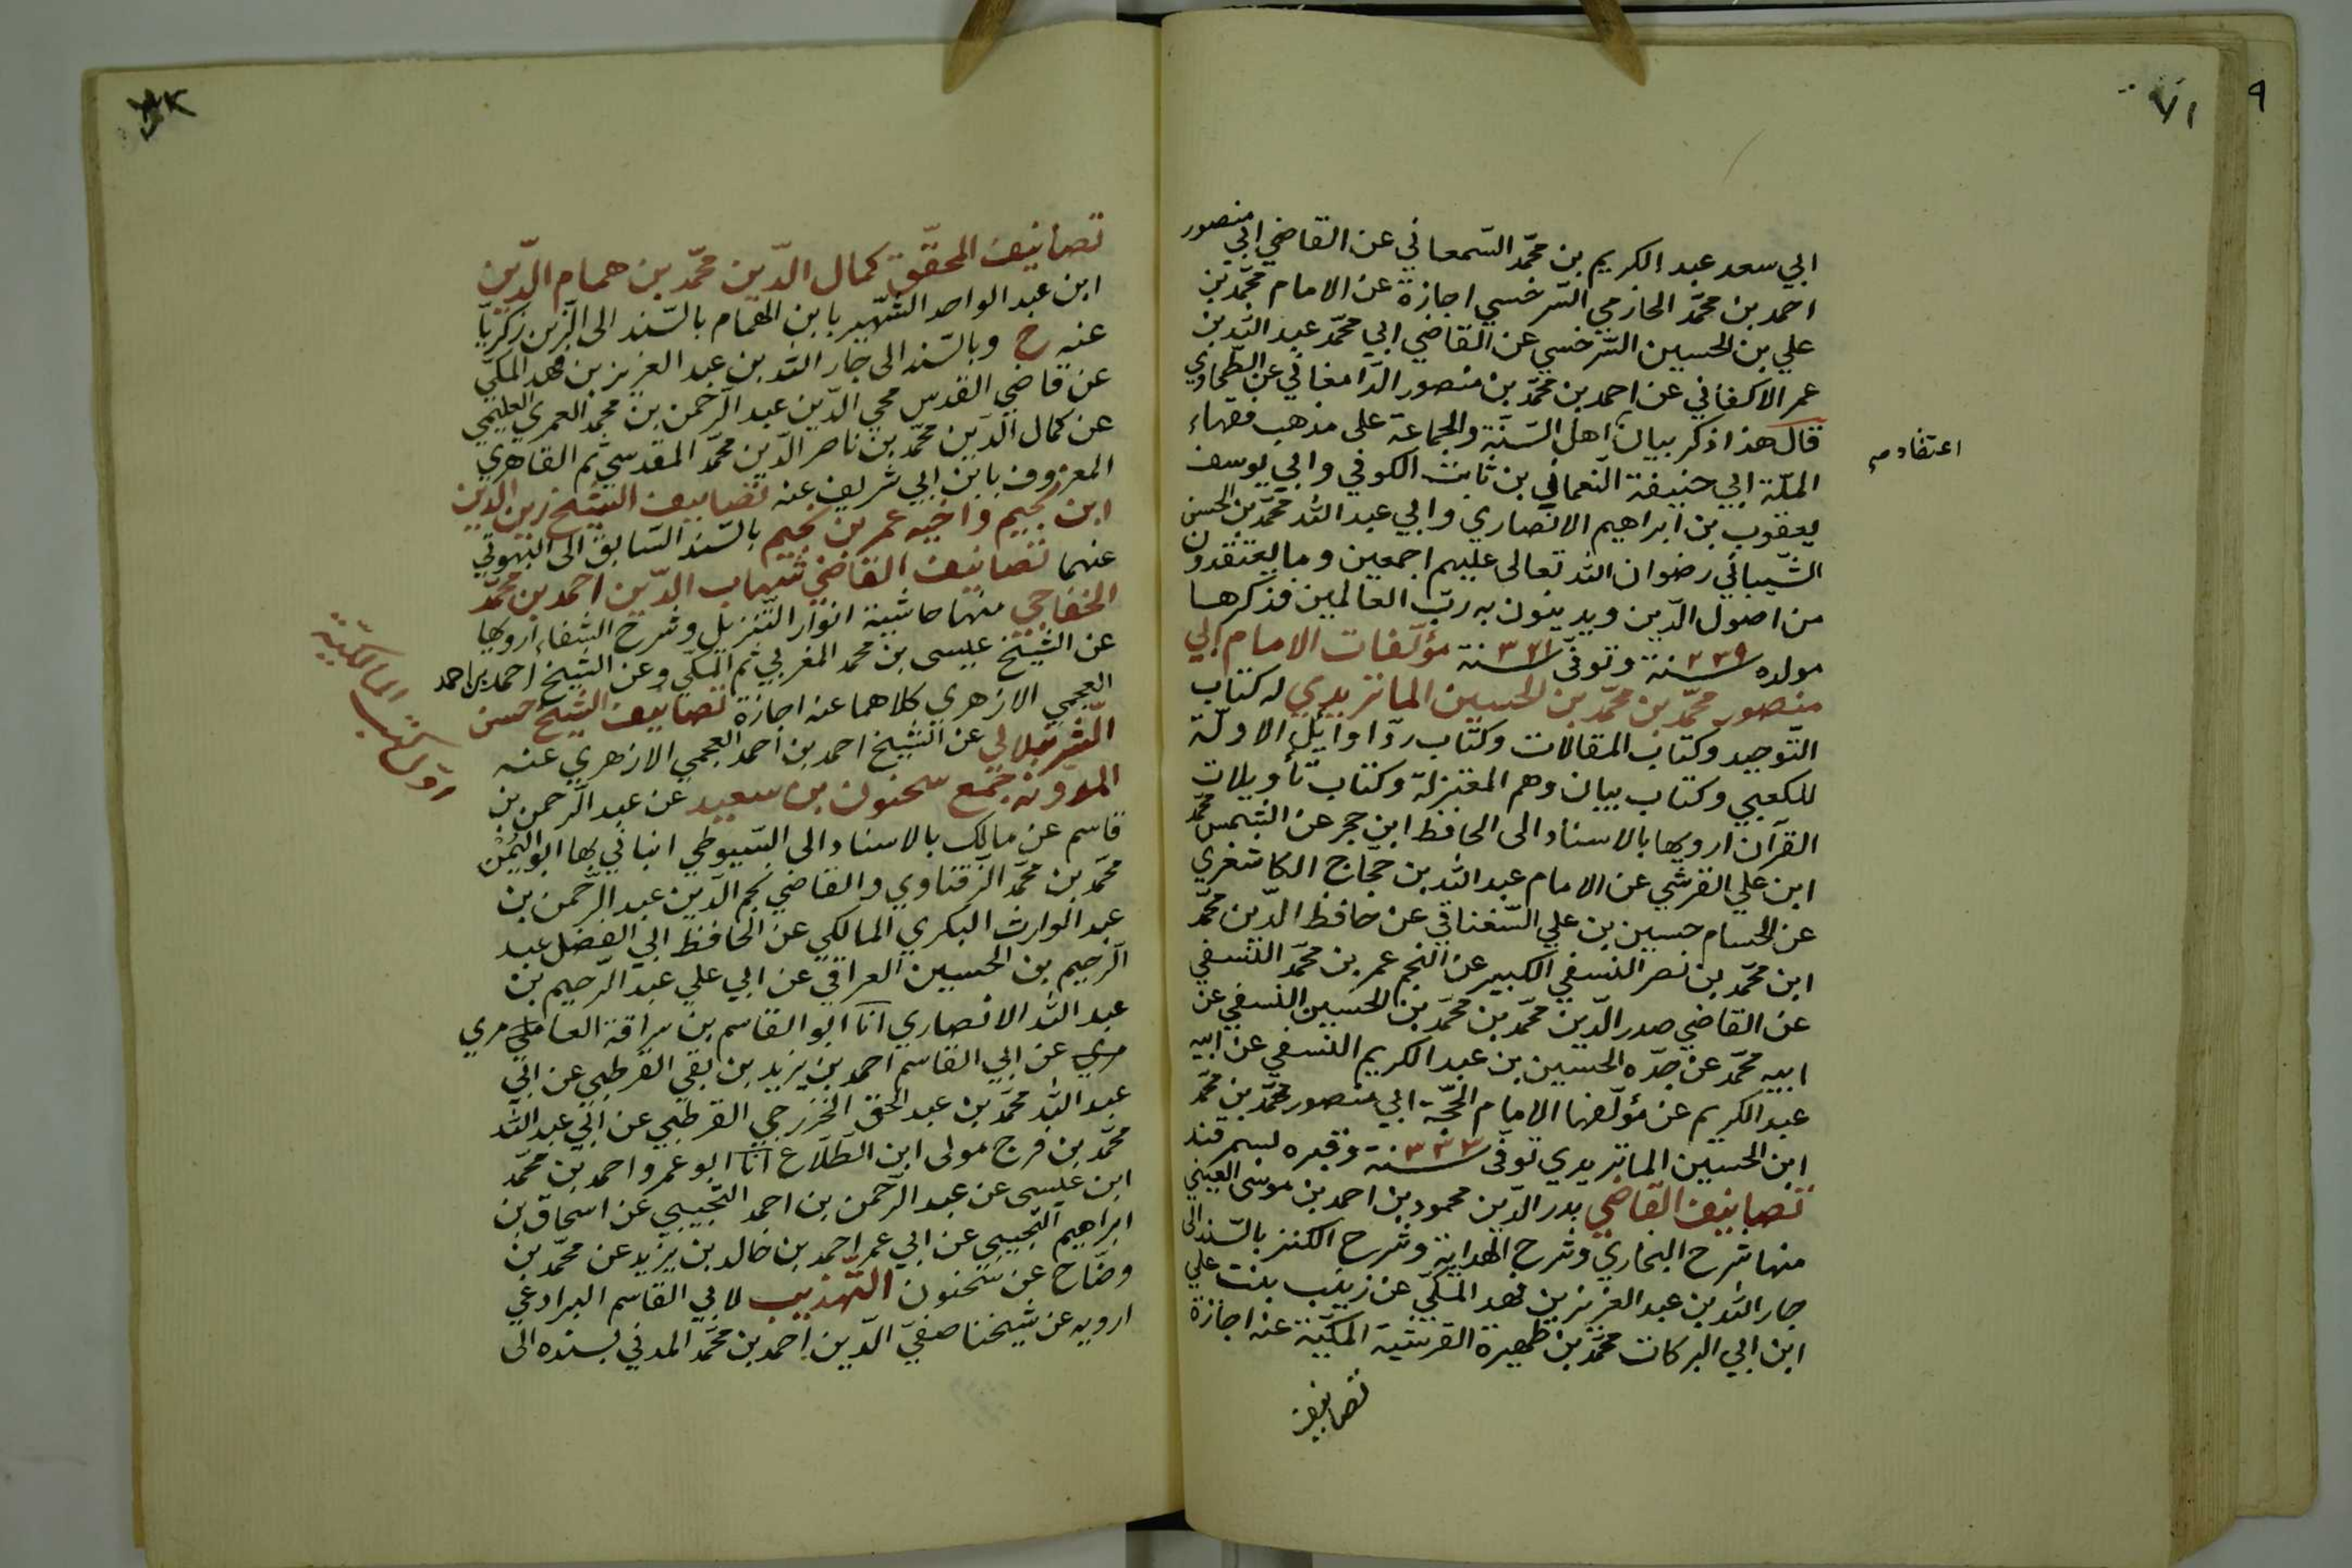 ٩
٧١
ابي سعد عبد الكريم بن محمّد السّمعاني عن القاضي ابي منصور
احمد بن محمّد الحازمي السّرخسي اجازة عن الامام محمّد بن
علي بن الحسين السّرخسي عن القاضي ابي محمّد عبد الله بن
عمر الاكفاني عن احمد بن محمّد بن منصور الدّامغاني عن الطّحاوي
قال هذا ذكر بيان اهل السّنّة والجماعة على مذهب فقهاء
اعتقاد صح
الملّة ابي حنيفة النّعمان بن ثابت الكوفي وابي يوسف
يعقوب بن ابراهيم الانصاري وابي عبد الله محمّد بن الحسن
الشّيباني رضوان الله تعالى عليهم اجمعين وما يعتقدون
من اصول الدّين ويدينون به ربّ العالمين فذكرها
مولده سنة ٢٣٩ وتوفّى سنة ٣٢١ مؤلّفات الامام ابي
منصور محمّد بن محمّد بن الحسين الماتريدي له كتاب
التّوحيد وكتاب المقالات وكتاب ردّ اوايل الاولّة
للكعبي وكتاب بيان وهم المعتزلة وكتاب تأويلات
القرآن ارويها بالاسناد الى الحافظ ابن حجر عن الشّمس محمّد
ابن علي القرشي عن الامام عبد الله بن حجّاج الكاشغري
عن الحسام حسين بن علي السّغناقي عن حافظ الدّين محمّد
ابن محمّد بن نصر النسفي الكبير عن النجم عمر بن محمّد النّسفي
عن القاضي صدر الدّين محمّد بن محمّد بن الحسين النسفي عن
ابيه محمّد عن جدّه الحسين بن عبد الكريم النسفي عن ابيه
عبد الكريم عن مؤلّفها الامام الحجّة ابي منصور محمّد بن محمّد
ابن الحسين الماتريدي توفّى سنة ٣٣٣ وقبره بسمرقند
تصانيف القاضي بدر الدّين محمود بن احمد بن موسى العيني
منها شرح البخاري وشرح الهداية وشرح الكنز بالسّند الى
جار الله بن عبد العزيز بن فهد المكّي عن زينب بنت علي
ابن ابي البركات محمّد بن ظهيرة القرشيّة المكّيّة عنه اجازة
تصانيف
تصانيف المحقّق كمال الدّين محمّد بن همام الدّين
ابن عبد الواحد الشّهير بابن الهمام بالسّند الى الزّين زكريّا
عنه ح وبالسّند الى جار الله بن عبد العزيز بن فهد المكّي
عن قاضي القدس محيي الدّين عبد الرّحمن بن محمّد العمري العليمي
عن كمال الدّين محمّد بن ناصر الدّين محمّد المقدسي ثم القاهري
المعروف بابن ابي شريف عنه تصانيف الشّيخ زين الدين
ابن نجيم واخيه عمر بن نجيم بالسّند السّابق الى البهوتي
عنهما تصانيف القاضي شهاب الدّين احمد بن محمّد
الخفاجي منها حاشية انوار التّنزيل وشرح الشفاء ارويها
عن الشّيخ عيسى بن محمّد المغربي ثم المكّي وعن الشّيخ احمد بن احمد
العجمي الازهري كلاهما عنه اجازة تصانيف الشّيخ حسن
الشّرنبلالي عن الشّيخ احمد بن احمد العجمي الازهري عنه
المدوّنة جمع سحنون بن سعيد عن عبد الرّحمن بن
المالكيّة
قاسم عن مالك بالاسناد الى السّيوطي انباني بها ابو اليُمْن
محمّد بن محمّد الزّفتاوي والقاضي نجم الدّين عبد الرّحمن بن
عبد الوارث البكري المالكي عن الحافظ ابي الفضل عبد
الرّحيم بن الحسين العراقي عن ابي علي عبد الرّحيم بن
عبد الله الانصاري انا ابو القاسم بن سراقة العامري
مري عن ابي القاسم احمد بن يزيد بن بقي القرطبي عن ابي
عبد الله محمّد بن عبد الحق الخزرجي القرطبي عن ابي عبد الله
محمّد بن فرج مولى ابن الطّلاع انا ابو عمرو احمد بن محمّد
ابن عيسى عن عبد الرّحمن بن احمد التّجيبي عن اسحاق بن
ابراهيم التجيبي عن ابي عمر احمد بن خالد بن يزيد عن محمّد بن
وضّاح عن سحنون التّهذيب لابي القاسم البرادعي
ارويه عن شيخنا صفيّ الدّين احمد بن محمّد المدني بسنده الى